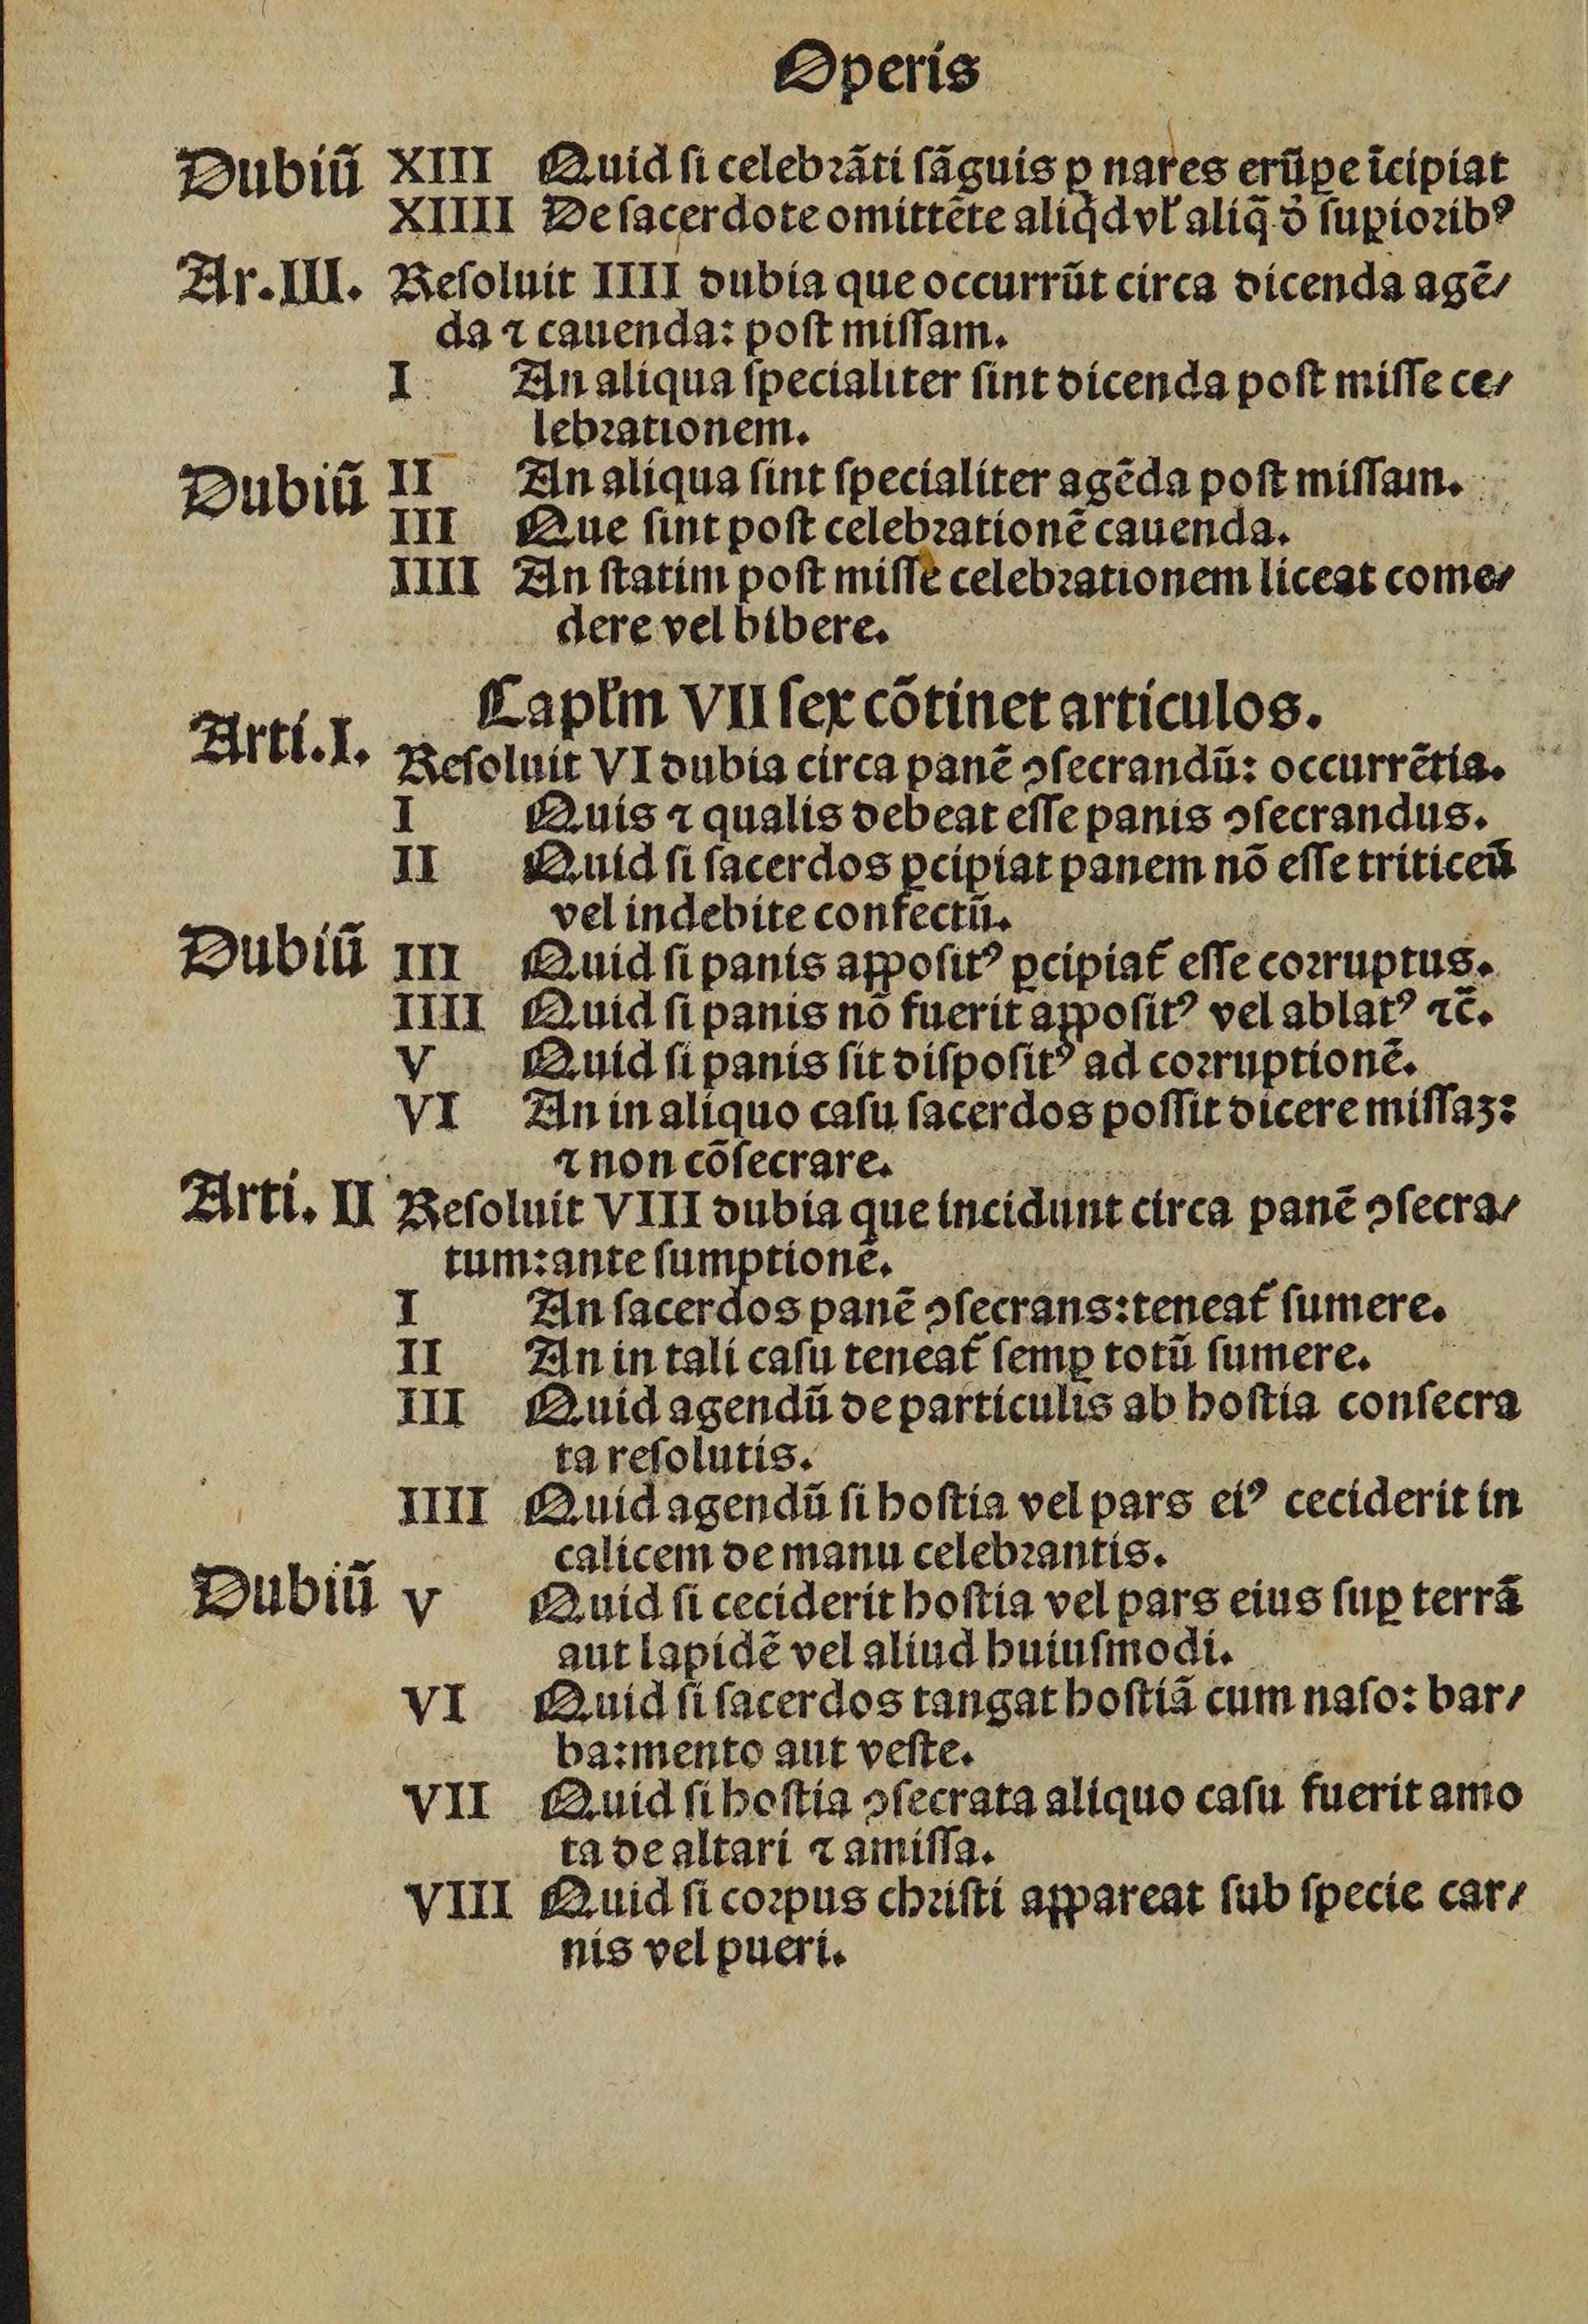 Operis
Dubiũ XIII Quid ſi celebꝛãti ſãguis ꝑ nares erũꝑe ĩcipiat
XIIII De ſacerdote omittẽte aliqͥd vꝉ aliq̃ ð ſuꝑioꝛibꝰ
Ar.III. Reſoluit IIII dubia que occurrũt circa dicenda agẽ⸗
da ⁊ cauenda: poſt miſſam.
I An aliqua ſpecialiter ſint dicenda poſt miſſe ce⸗
lebꝛationem.
Dubiũ II An aliqua ſint ſpecialiter agẽda poſt miſſam.
III Que ſint poſt celebꝛationẽ cauenda.
IIII An ſtatim poſt miſſe celebꝛationem liceat come⸗
dere vel bibere.
Capꝉm VII ſex cõtinet articulos.
Arti.I. Reſoluit VI dubia circa panẽ ꝯſecrandũ: occurrẽtia.
I Quis ⁊ qualis debeat eſſe panis ꝯſecrandus.
II Quid ſi ſacerdos ꝑcipiat panem nõ eſſe triticeũ
vel indebite confectũ.
Dubiũ III Quid ſi panis aꝓpoſitꝰ ꝑcipiat᷑ eſſe coꝛruptus.
IIII Quid ſi panis nõ fuerit appoſitꝰ vel ablatꝰ ⁊c̃.
V Quid ſi panis ſit diſpoſitꝰ ad coꝛruptionẽ.
VI An in aliquo caſu ſacerdos poſſit dicere miſſaꝫ:
⁊ non cõſecrare.
Arti. II Reſoluit VIII dubia que incidunt circa panẽ ꝯſecra⸗
tum:ante ſumptionẽ.
I An ſacerdos panẽ ꝯſecrans:teneat᷑ ſumere.
II An in tali caſu teneat᷑ ſemꝑ totũ ſumere.
III Quid agendũ de particulis ab hoſtia conſecra
ta reſolutis.
IIII Quid agendũ ſi hoſtia vel pars eiꝰ ceciderit in
calicem de manu celebꝛantis.
Dubiũ V Quid ſi ceciderit hoſtia vel pars eius ſuꝑ terrã
aut lapidẽ vel aliud huiuſmodi.
VI Quid ſi ſacerdos tangat hoſtiã cum naſo: bar⸗
ba:mento aut veſte.
VII Quid ſi hoſtia ꝯſecrata aliquo caſu fuerit amo
ta de altari ⁊ amiſſa.
VIII Quid ſi coꝛpus chꝛiſti appareat ſub ſpecie car⸗
nis vel pueri.